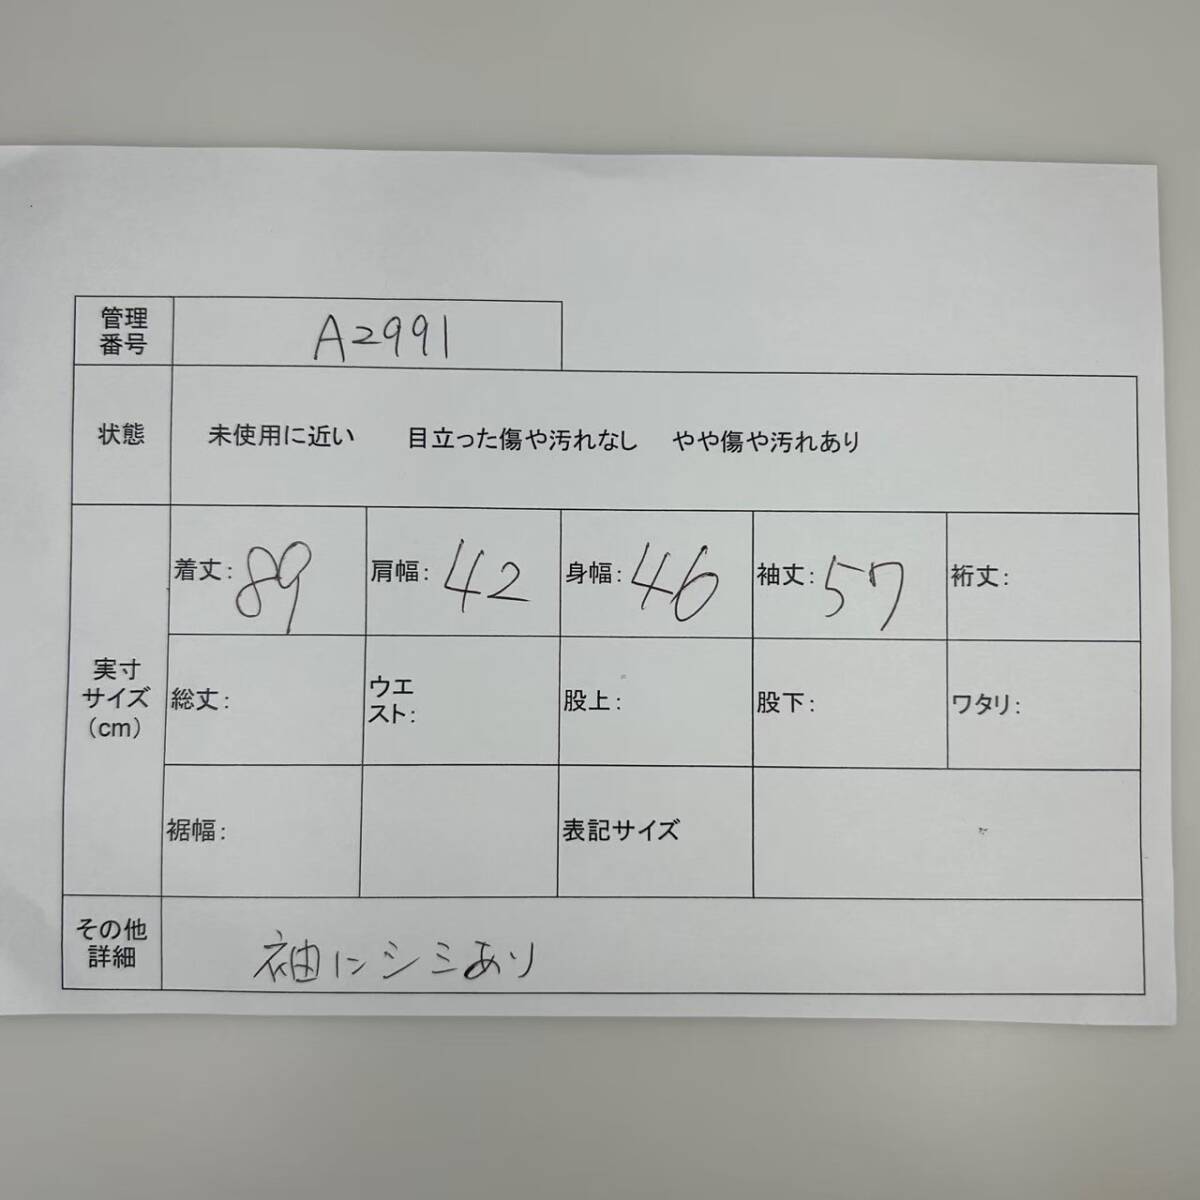 管理
番号
A2991
状態
未使用に近い 目立った傷や汚れなし やや傷や汚れあり
実寸
サイズ
(cm)
着丈: 89
肩幅: 42
身幅: 46
袖丈: 57
裄丈:
総丈:
ウエ
スト:
股上:
股下:
ワタリ:
裾幅:
表記サイズ
その他
詳細
袖にシミあり